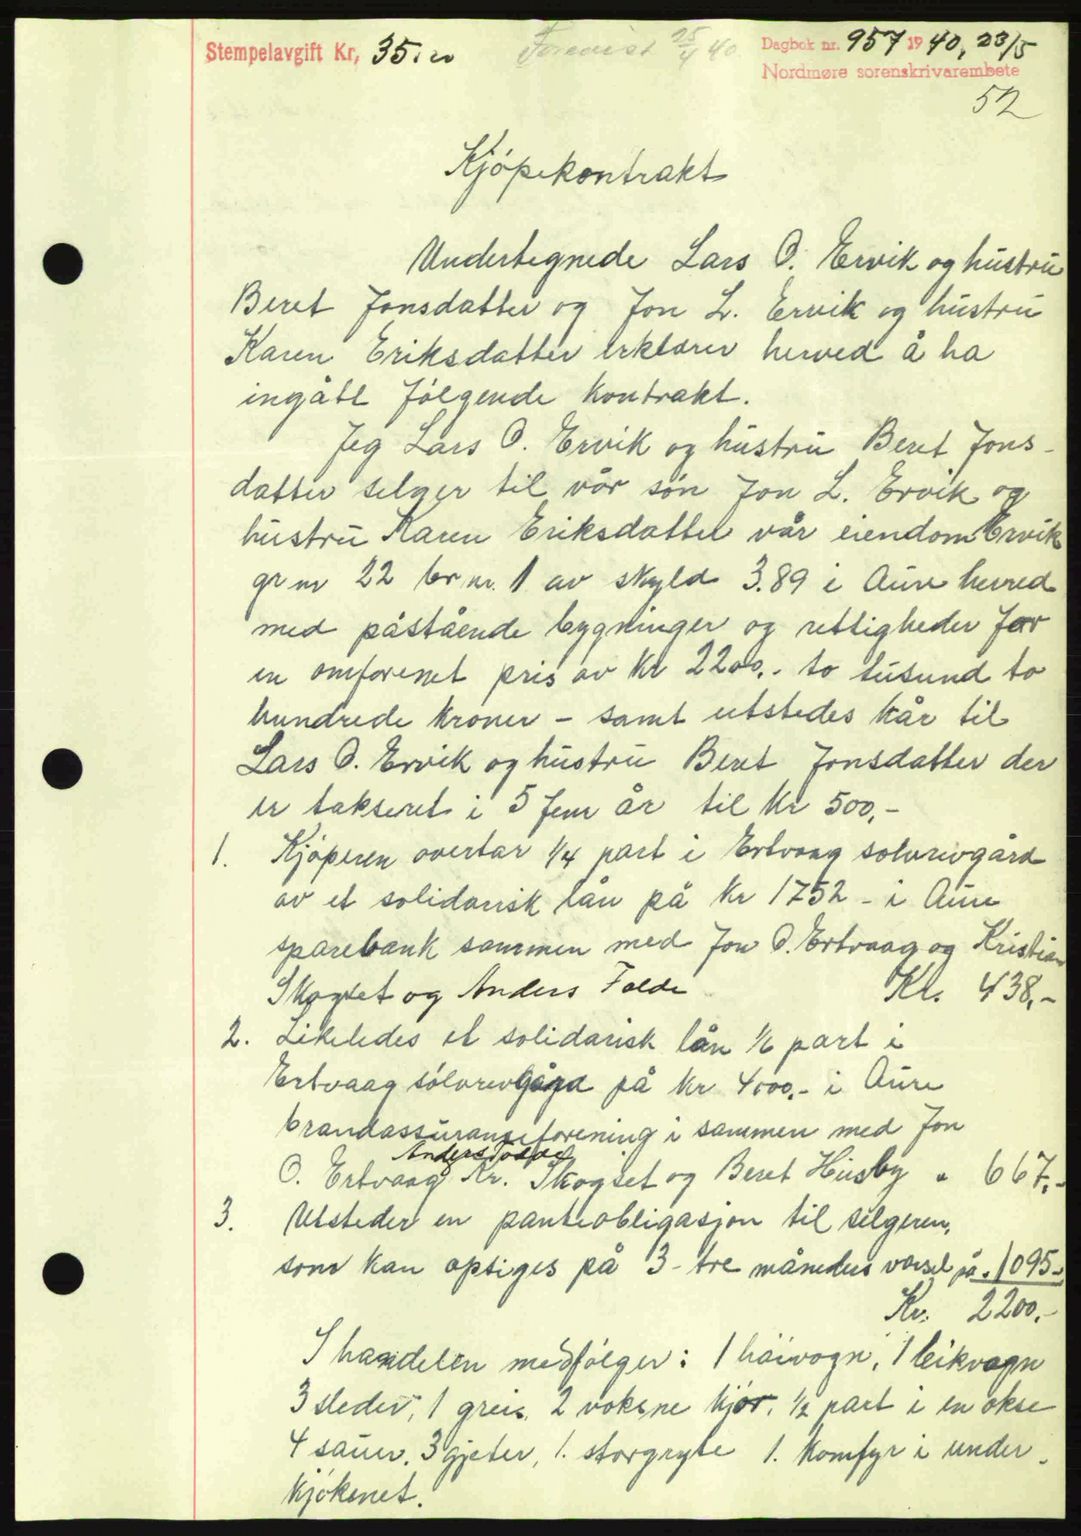 Stempelavgift Kr, 35,00
Forevist 25/4 40
Dagbok nr. 957 1940, 23/5
Nordmøre sorenskrivarembete
52
Kjøpekontrakt
Undertegnede Lars O. Ervik og hustru
Beret Jonsdatter og Jon L. Ervik og hustru
Karen Eriksdatter erklærer herved å ha
ingått følgende kontrakt.
Jeg Lars O. Ervik og hustru Beret Jons-
datter selger til vår søn Jon L. Ervik og
hustru Karen Eriksdatter vår eiendom Ervik
gr nr 22 br nr. 1 av skyld 3.89 i Aure herred
med påstående bygninger og rettigheder for
en omforenet pris av Kr 2200.- to tusund to
hundrede kroner - samt utstedes kår til
Lars O. Ervik og hustru Beret Jonsdatter der
er takseret i 5 fem år til Kr 500,-
1. Kjøperen overtar 1/4 part i Ertvaag sølvrevgård
av et solidarisk lån på Kr 1752 - i Aure
sparebank sammen med Jon O. Ertvaag og Kristian
Skogset og Anders Folde Kr. 438,-
2. Likeledes et solidarisk lån 1/6 part i
Ertvaag sølvrevgård på Kr 4000.- i Aure
brandassuranseforening i sammen med Jon
Anders Folde
O. Ertvaag Kr. Skogset og Beret Husby " 667,-
3. Utsteder en panteobligasjon til selgeren,
som kan opsiges på 3 - tre måneders varsel på " 1095-
Kr. 2200.-
I handelen medfølger: 1 høivogn, 1 leikvogn
3 sleder, 1 greie, 2 voksne kjør, 1/2 part i en okse
4 sauer, 3 gjeter, 1. storgryte 1. komfyr i under-
kjøkenet.